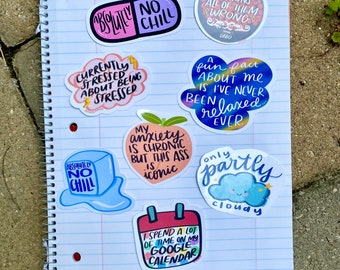 ABSOLUTELY
NO
CHILL
ALL OF THEM
WRONG
CURRENTLY
STRESSED
ABOUT BEING
STRESSED
a fun fact
ABOUT ME
IS I'VE NEVER
BEEN relaxed
EVER
MY
anxiety
IS CHRONIC
BUT THIS ASS IS
iconic
ABSOLUTELY
NO
CHILL
only
partly
cloudy
I SPEND A LOT
OF TIME ON MY
GOOGLE
CALENDAR